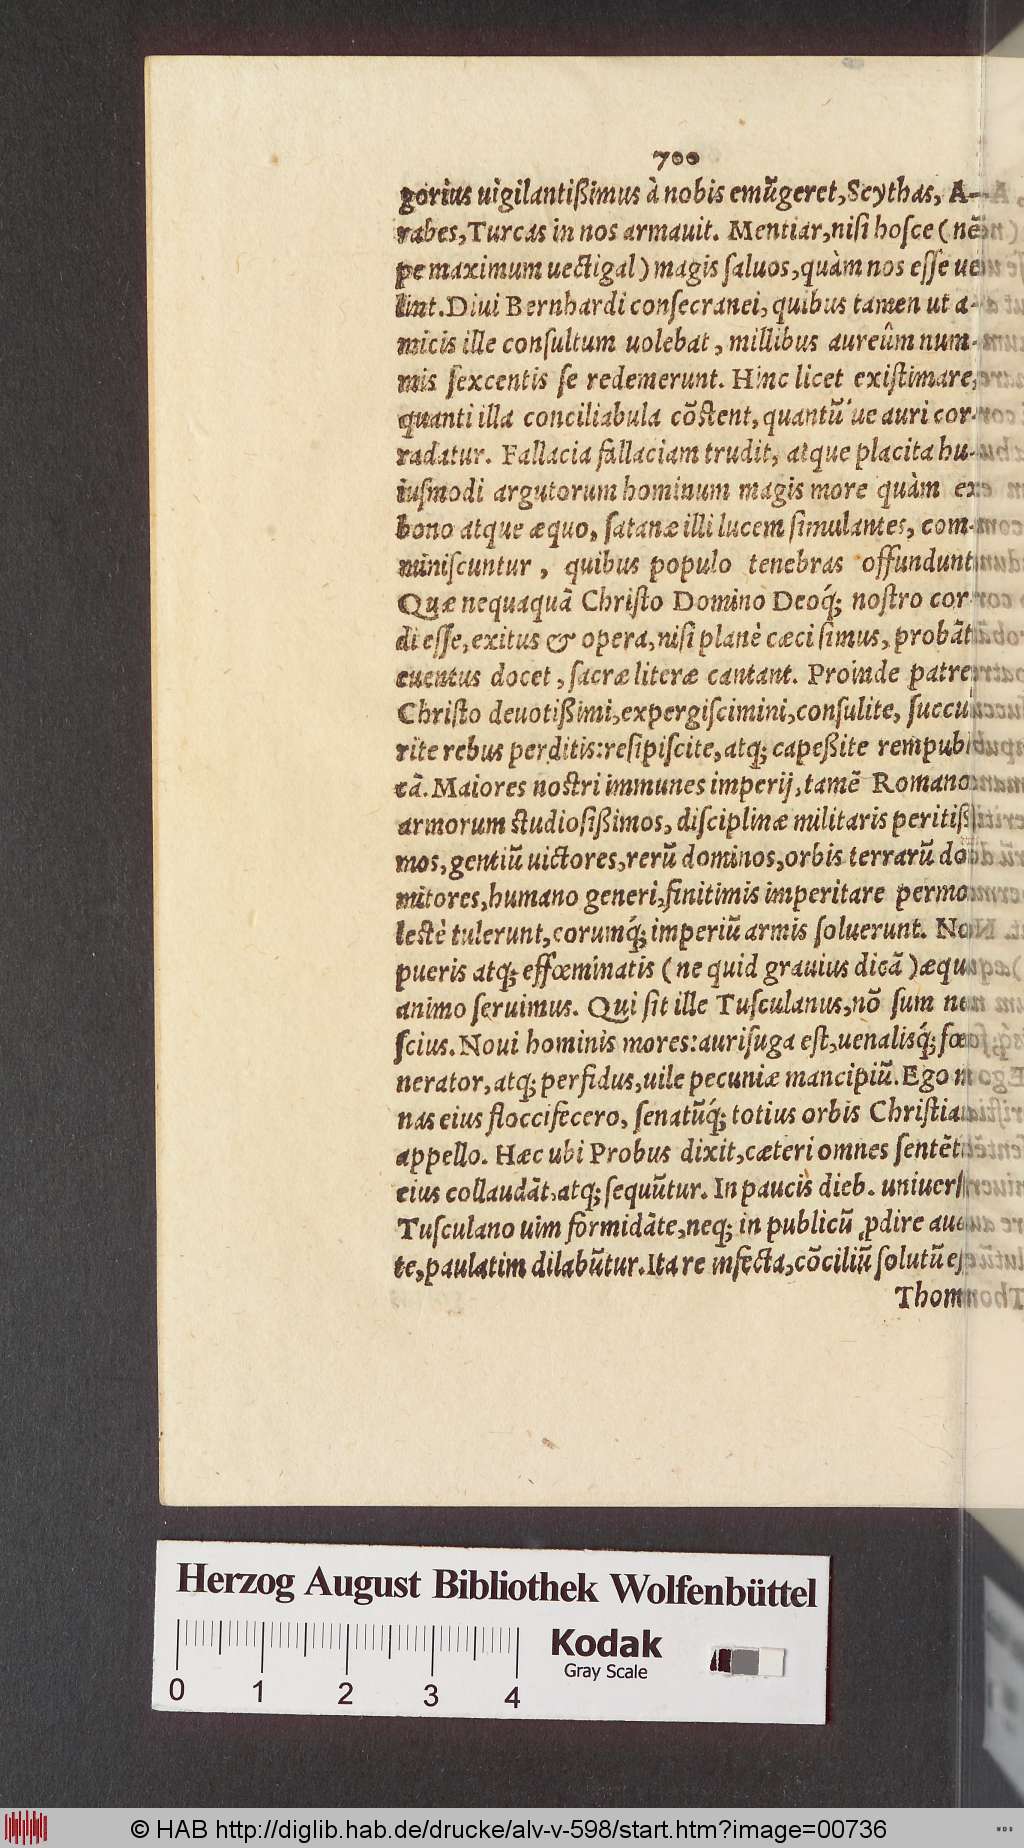 700
gorius uigilantißimus à nobis emũgeret, Scythas, A-
rabes, Turcas in nos armauit. Mentiar, nisi hosce (nẽ
pe maximum uectigal) magis saluos, quàm nos esse ue
lint. Diui Bernhardi consecranei, quibus tamen ut a-
micis ille consultum uolebat, millibus aureûm num-
mis sexcentis se redemerunt. Hinc licet existimare,
quanti illa conciliabula cõstent, quantũ´ue auri cor-
radatur. Fallacia fallaciam trudit, atque placita hu-
iusmodi argutorum hominum magis more quàm ex
bono atque æquo, satanæ illi lucem simulantes, com-
miniscuntur, quibus populo tenebras offundunt
Quæ nequaquã Christo Domino Deoq́; nostro cor
di esse, exitus & opera, nisi planè cæci simus, probãt
euentus docet, sacræ literæ cantant. Proinde patre
Christo deuotißimi, expergiscimini, consulite, succu
rite rebus perditis: resipiscite, atq; capeßite rempubl
cã. Maiores nostri immunes imperij, tamẽ Romano
armorum studiosißimos, disciplinæ militaris peritiß
mos, gentiũ uictores, rerũ dominos, orbis terrarũ do
mitores, humano generi, finitimis imperitare permo
lestè tulerunt, eorumq́; imperiũ armis soluerunt. No
pueris atq; effœminatis (ne quid grauius dicã) æqu
animo seruimus. Qui sit ille Tusculanus, nõ sum ne
scius. Noui hominis mores: aurisuga est, uenalisq́; fœ
nerator, atq; perfidus, uile pecuniæ mancipiũ. Ego m
nas eius floccifecero, senatũq́; totius orbis Christia
appello. Hæc ubi Probus dixit, cæteri omnes sentẽt
eius collaudãt, atq; sequũtur. In paucis dieb. uniuers
Tusculano uim formidãte, neq; in publicũ ꝓdire aud
te, paulatim dilabũtur. Ita re infecta, cõciliũ solutũ es
Thom
Herzog August Bibliothek Wolfenbüttel
Kodak
Gray Scale
0 1 2 3 4
© HAB http://diglib.hab.de/drucke/alv-v-598/start.htm?image=00736